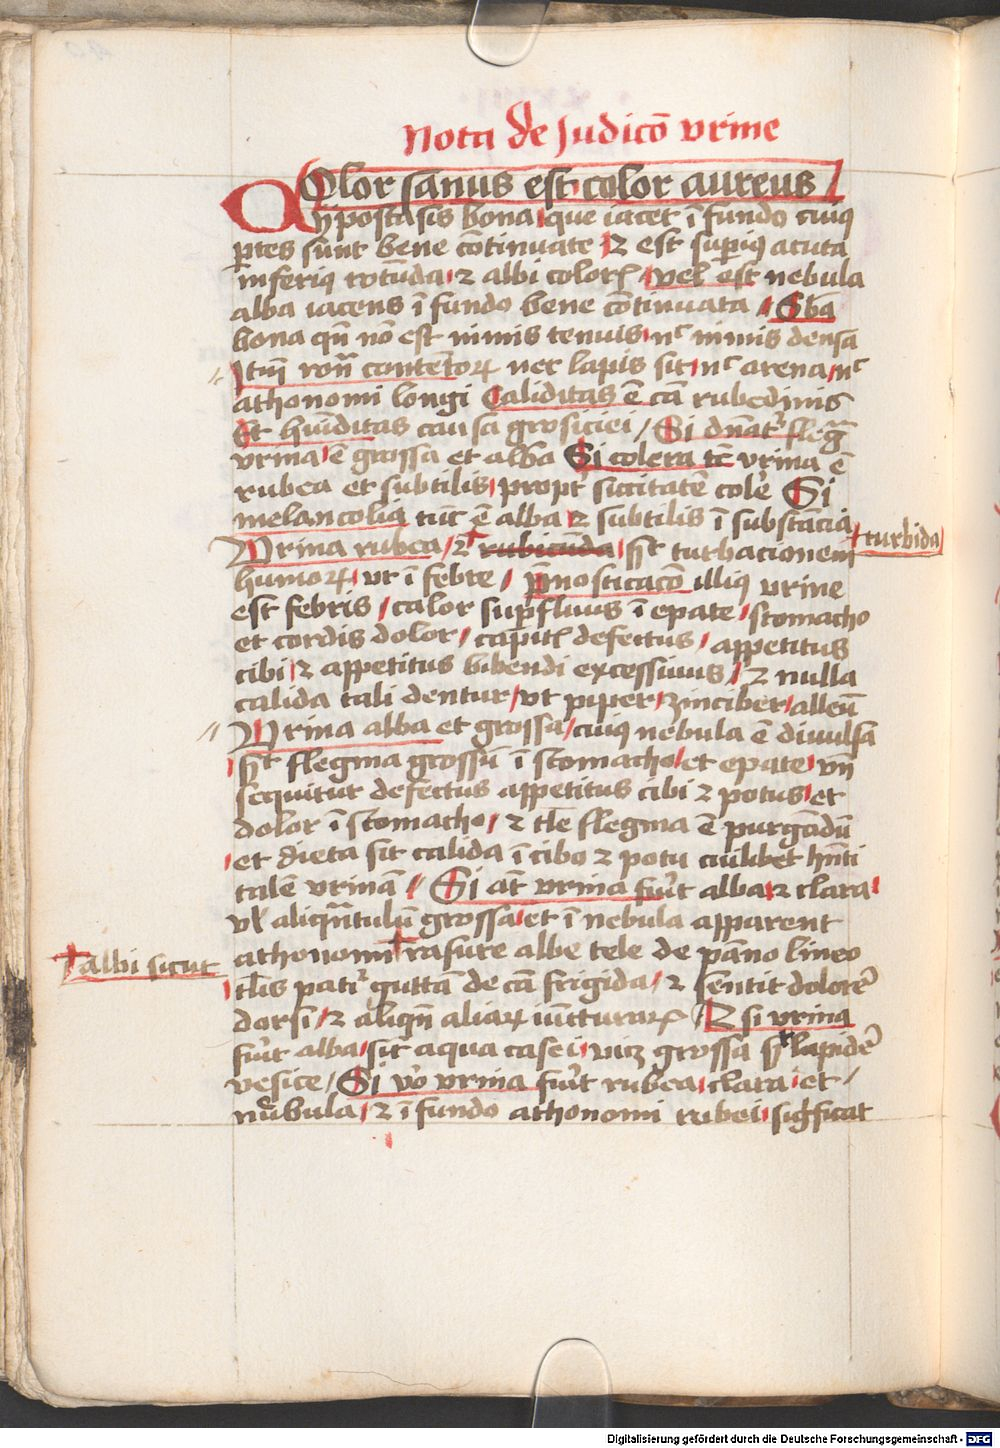 Nota de Judicō vrine
Color sanus est color aureus
ypostasis bona que iacet ī fundo cuiꝗ
ꝑtes sunt bene cōtinuate ⁊ est suꝑiꝗ acuta
inferiꝗ rotūda ⁊ albi colorꝭ vel est nebula
alba iacens ī fundo bene cōtinuata Sba
bona qn̄ nō est nimis tenuis nᶜ nimis densa
contentoꝝ nec lapis sit nᶜ arena nᶜ
athonomi longi Caliditas ē cā rubedinis
Et hūiditas causa grosiciei Si dn̄atᷣ flegᷓ
vrina ē grossa et alba Si colera tc̄ vrina ē
rubea et subtilis proptᷣ siccitatē cole᷑ Si
melancolia tūc ē alba ⁊ subtilis ī substācia
Vrina rubea ⁊ rubicūda sᷓt turbacionem
+ turbida
humoꝝ vt ī febre pn̄osticacō illiꝗ vrine
est febris calor suꝑfluus ī epate stomacho
et cordis dolor capitꝭ defectus appetitus
cibi ⁊ appetitus bibendi excessiuus ⁊ nulla
calida tali dentur vt piper zinciber alleū
Vrina alba et grossa cuiꝗ nebula ē diuulsa
sᷓt flegma grossū ī stomacho et epate vn̄
sequitur defectus appetitus cibi ⁊ potus et
dolor ī stomacho ⁊ tle flegma ē purgādū
et dieta sit calida ī cibo ⁊ potu cuilibet hn̄ti
talē vrinā Si at̄ vrina fuīt alba ⁊ clara
vł aliqn̄tulū grossa et ī nebula apparent
athonomi + rasure albe tele de pāno lineo
+ albi sicut
tłis patᷣ guttā de cā frigida ⁊ sentit dolorē
dorsi ⁊ aliqn̄ aliaꝝ iūcturaꝝ Et si vrina
fuīt alba sit aqua casei uicz grossa sᷓt lapidē
vesice Si vo᷑ vrina fuīt rubea clara et
nūbula ⁊ ī fundo athonomi rubei sigficat
Digitalisierung gefördert durch die Deutsche Forschungsgemeinschaft - DFG